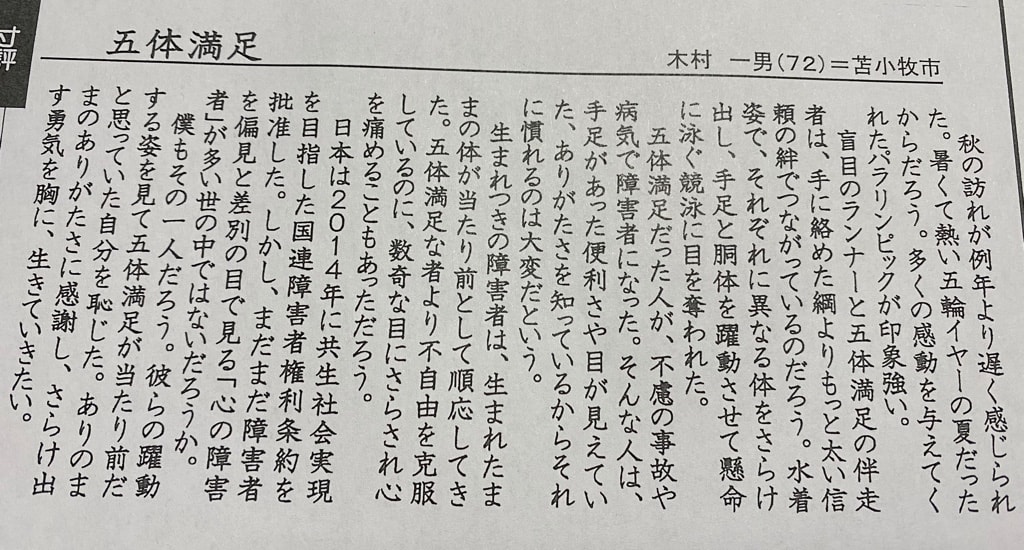 寸評
五体満足
木村 一男(72)=苫小牧市
秋の訪れが例年より遅く感じられ
た。暑くて熱い五輪イヤーの夏だった
からだろう。多くの感動を与えてく
れたパラリンピックが印象強い。
盲目のランナーと五体満足の伴走
者は、手に絡めた綱よりもっと太い信
頼の絆でつながっているのだろう。水着
姿で、それぞれに異なる体をさらけ
出し、手足と胴体を躍動させて懸命
に泳ぐ競泳に目を奪われた。
五体満足だった人が、不慮の事故や
病気で障害者になった。そんな人は、
手足があった便利さや目が見えてい
た、ありがたさを知っているからそれ
に慣れるのは大変だという。
生まれつきの障害者は、生まれたま
まの体が当たり前として順応してき
た。五体満足な者より不自由を克服
しているのに、数奇な目にさらされ心
を痛めることもあっただろう。
日本は2014年に共生社会実現
を目指した国連障害者権利条約を
批准した。しかし、まだまだ障害者
を偏見と差別の目で見る「心の障害
者」が多い世の中ではないだろうか。
僕もその一人だろう。彼らの躍動
する姿を見て五体満足が当たり前だ
と思っていた自分を恥じた。ありのま
まのありがたさに感謝し、さらけ出
す勇気を胸に、生きていきたい。